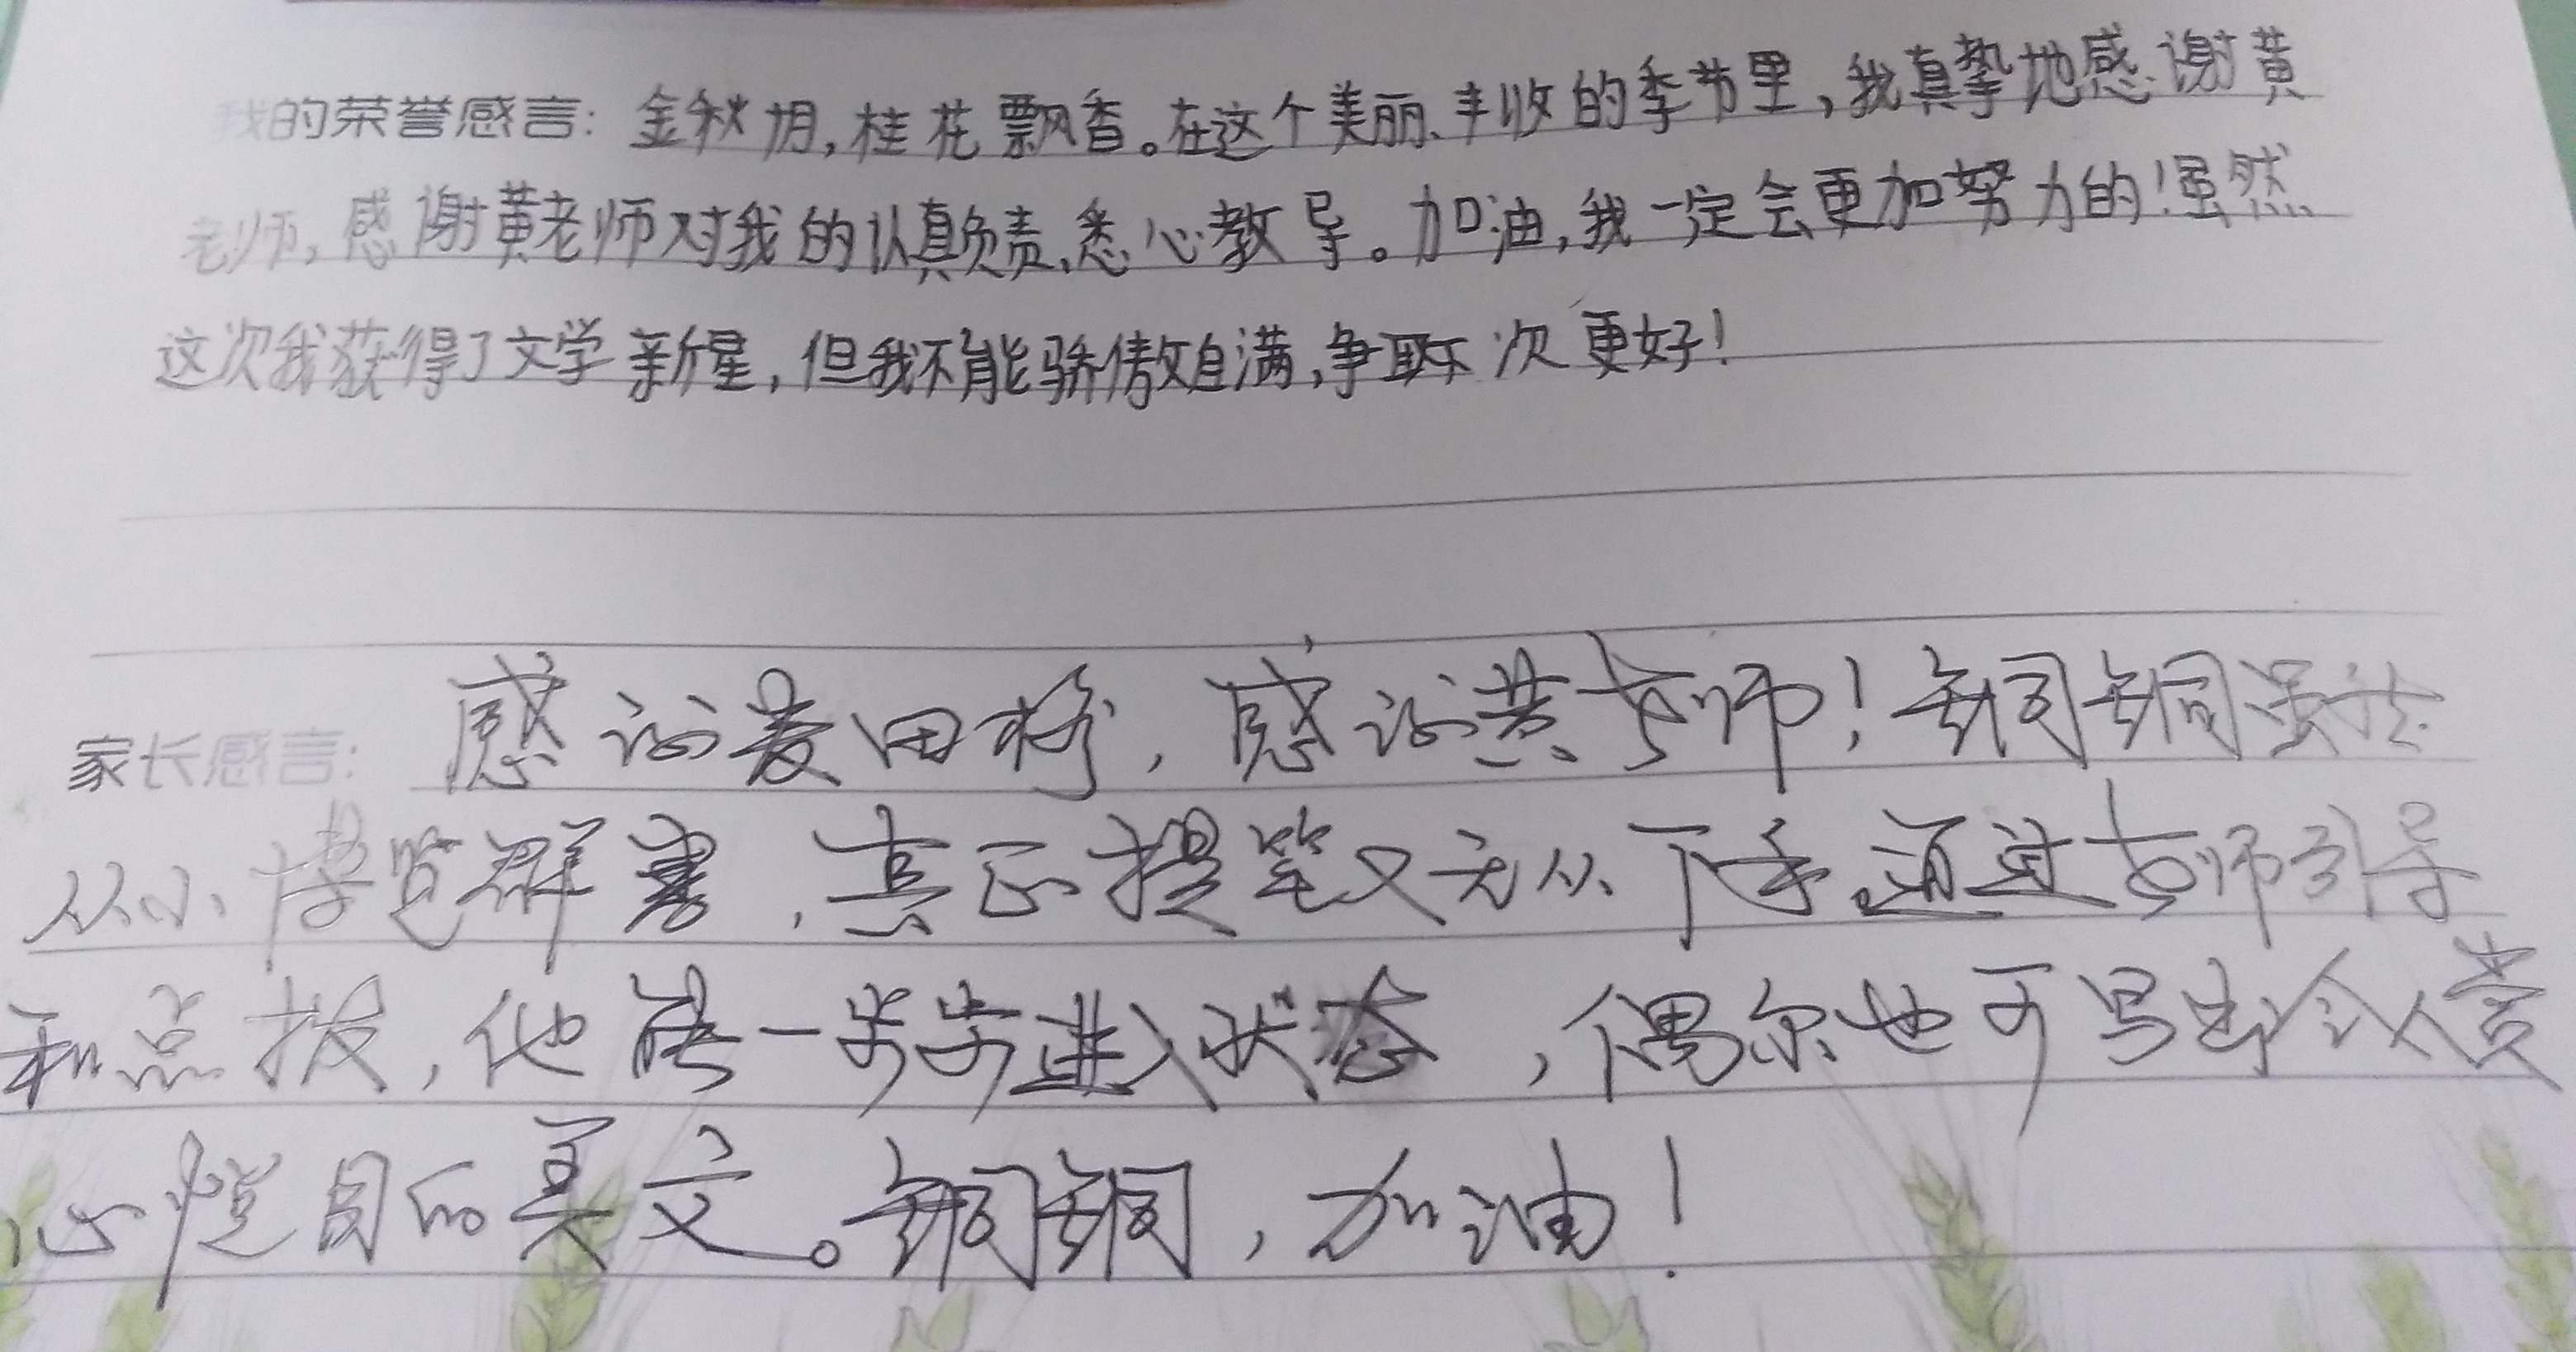 我的荣誉感言：金秋十月，桂花飘香。在这个美丽、丰收的季节里，我真挚地感谢黄
老师，感谢黄老师对我的认真负责、悉心教导。加油，我一定会更加努力的！虽然
这次我获得了文学新星，但我不能骄傲自满，争取下次更好！
家长感言：感谢麦田将，感谢黄老师！铜铜虽然
从小博览群书，真正提笔又无从下手通过老师引导
和点拨，他能一步步进入状态，偶尔也可写出令人赏
心悦目的美文。铜铜，加油！